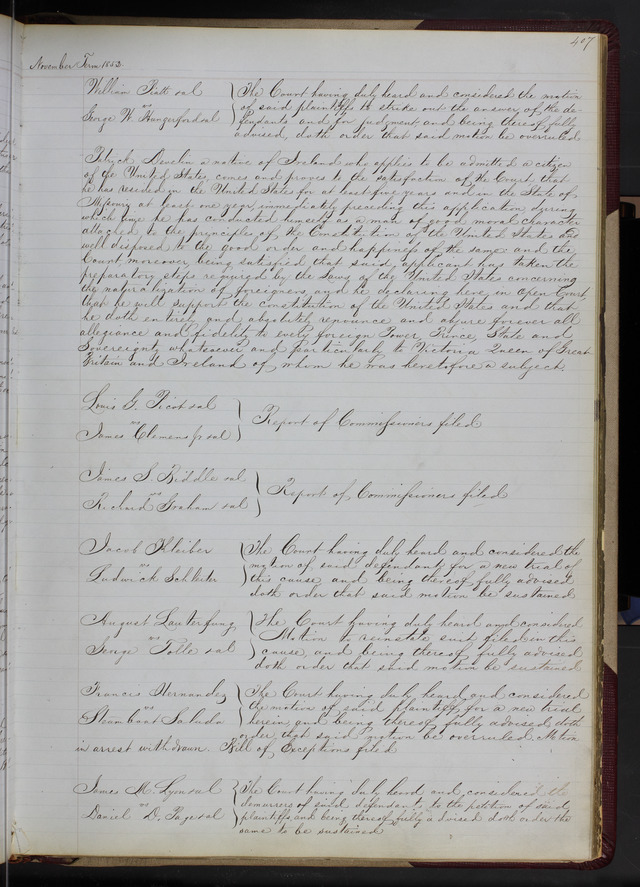 407
November Term 1853
William Pratt et al
vs
George W. Hungerford et al
The Court having duly heard and considered the motion
of said plaintiffs to strike out the answer of the de-
fendants and for judgment and being thereof fully
advised, doth order that said motion be overruled
Patrick Develin a native of Ireland who applies to be admitted a citizen
of the United States comes and proves to the satisfaction of the Court, that
he has resided in the United States for at least five years and in the State of
Missouri at least one year, immediately preceding this application during
which time he has conducted himself as a man of good moral character
attached to the principles of the Constitution of the United States and
well disposed to the good order and happiness of the same and the
Court moreover being satisfied that said applicant has taken the
preparatory steps required by the Laws of the United States concerning
the naturalization of foreigners, and he declaring here in Open Court
that he will support the constitution of the United States and that
he doth entirely and absolutely renounce and abjure forever all
allegiance and fidelity to every foreign Power, Prince, State and
Sovereignty whatsoever and particularly to Victoria Queen of Great
Britain and Ireland of whom he was heretofore a subject.
Louis G. Picot et al
vs
James Clemens Jr et al
Report of Commissioners filed
James S. Biddle et al
vs
Richard Graham et al
Report of Commissioners filed
Jacob Kleiber
vs
Ludwick Schluter
The Court having duly heard and considered the
motion of said defendant for a new trial of
this cause and being thereof fully advised
doth order that said motion be sustained
August Lauterfung
vs
George Tolle et al
The Court having duly heard and considered
Motion to reinstate suit filed in this
cause, and being thereof fully advised
doth order that said motion be sustained
Francis Hernandez
vs
Steamboat Saluda
The Court having duly heard and considered
the motion of said plaintiff for a new trial
herein and being thereof fully advised doth
order that said motion be overruled. Motion
in arrest withdrawn. Bill of Exceptions filed
James M. Lynn et al
vs
Daniel D. Page et al
The Court having duly heard and considered the
demurrers of said defendants to the petition of said
plaintiffs and being thereof fully advised doth order the
same to be sustained